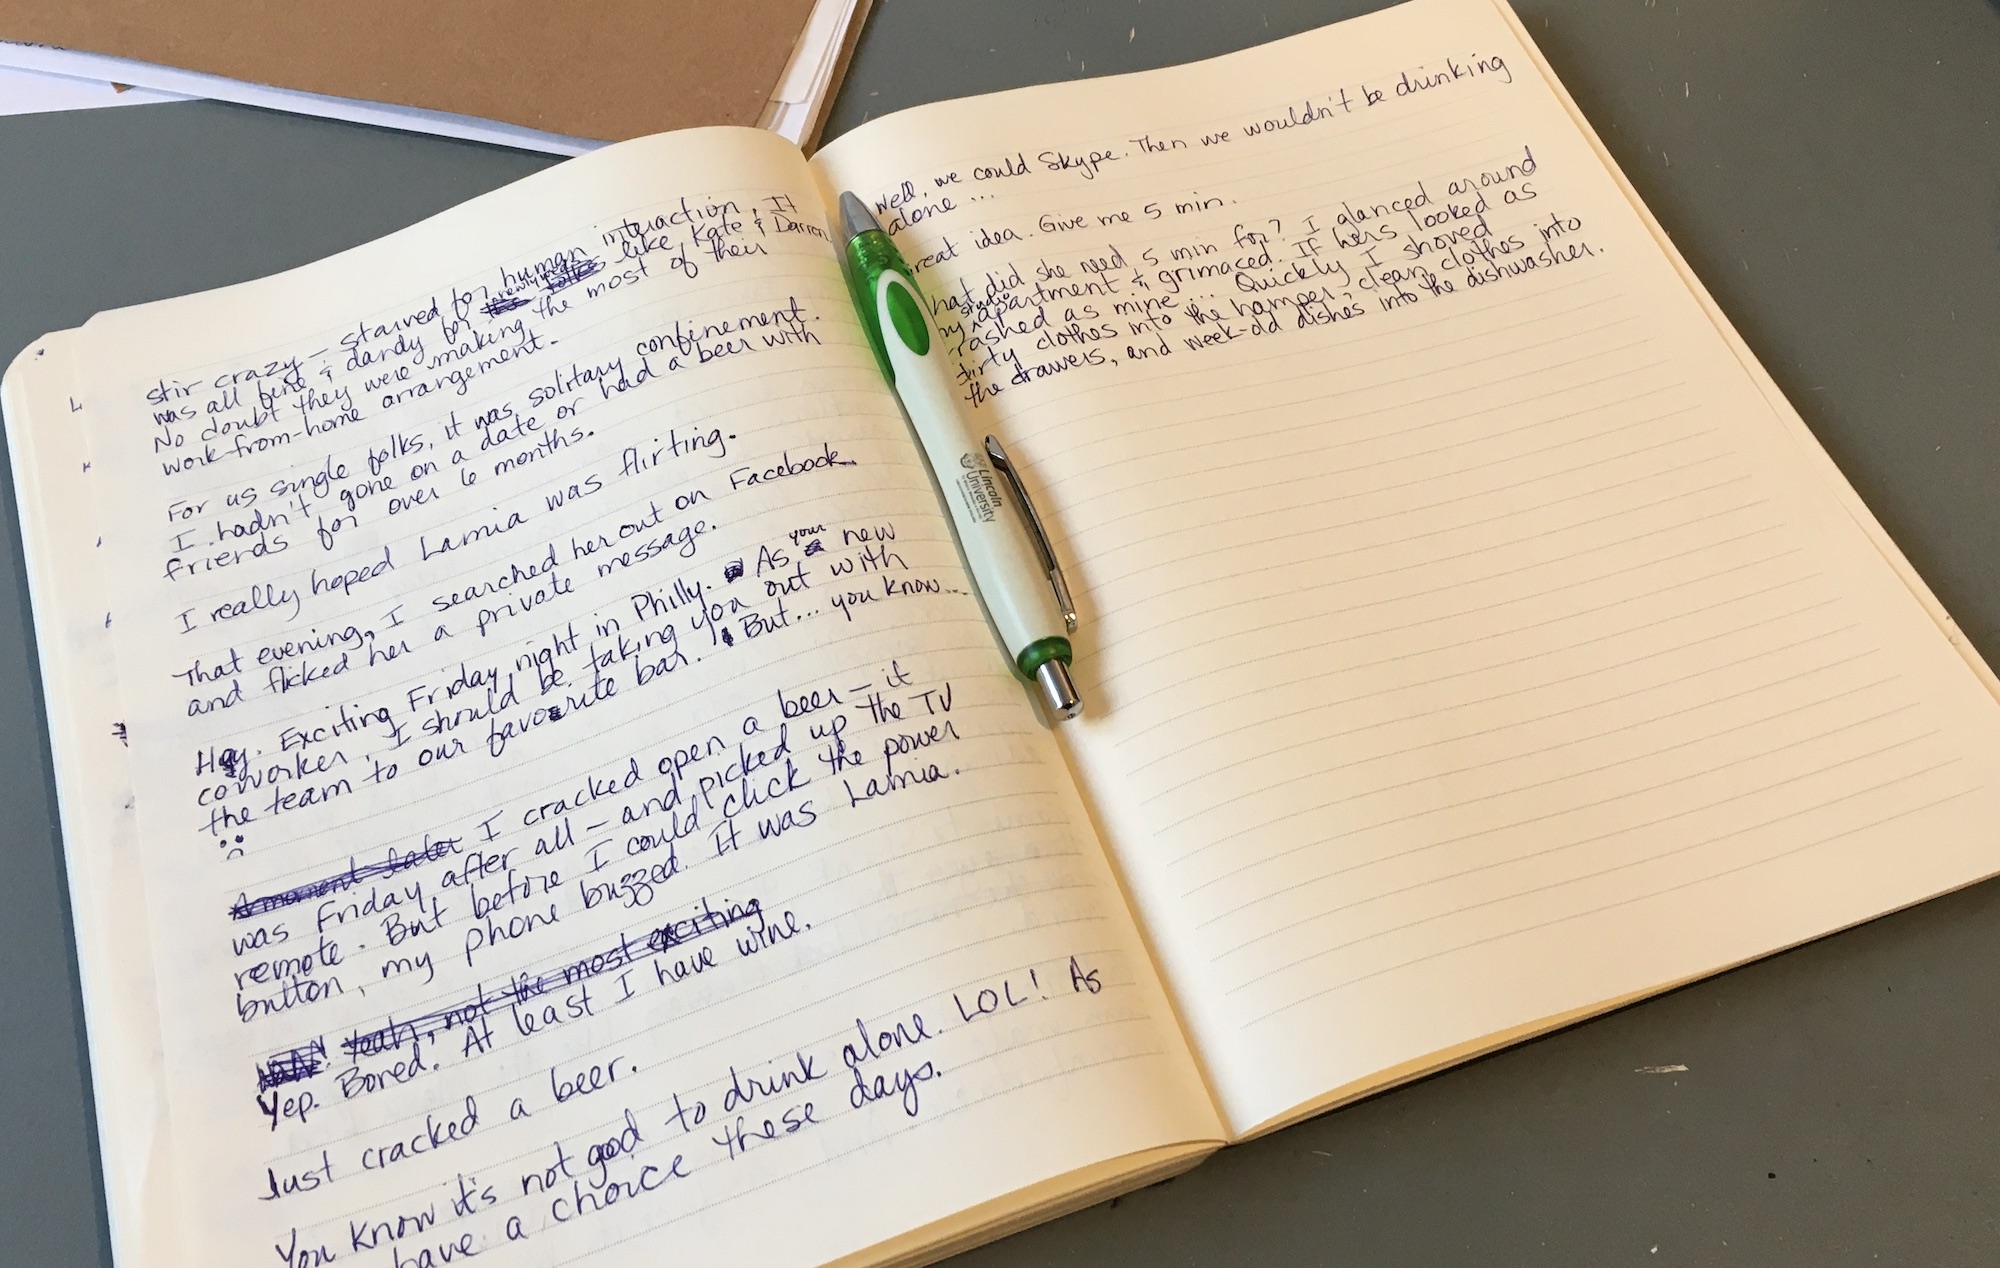 stir crazy – starved for human interaction. It
was all fine & dandy for newlyweds like Kate & Darren.
No doubt they were making the most of their
work-from-home arrangement.
For us single folks, it was solitary confinement.
I hadn't gone on a date or had a beer with
friends for over 6 months.
I really hoped Lamia was flirting.
That evening, I searched her out on Facebook
and flicked her a private message.
Hey. Exciting Friday night in Philly. As your new
coworker, I should be taking you out with
the team to our favorite bar. But... you know...
:(
A moment later I cracked open a beer – it
was Friday after all – and picked up the TV
remote. But before I could click the power
button, my phone buzzed. It was Lamia.
Yeah, not the most exciting
Yep. Bored. At least I have wine.
Just cracked a beer.
You know it's not good to drink alone. LOL! As
have a choice these days.
Well, we could Skype. Then we wouldn't be drinking
alone...
reat idea. Give me 5 min.
hat did she need 5 min for? I glanced around
my studio apartment & grimaced. If hers looked as
trashed as mine... Quickly I shoved
dirty clothes into the hamper, clean clothes into
the drawers, and week-old dishes into the dishwasher.
Lincoln
University